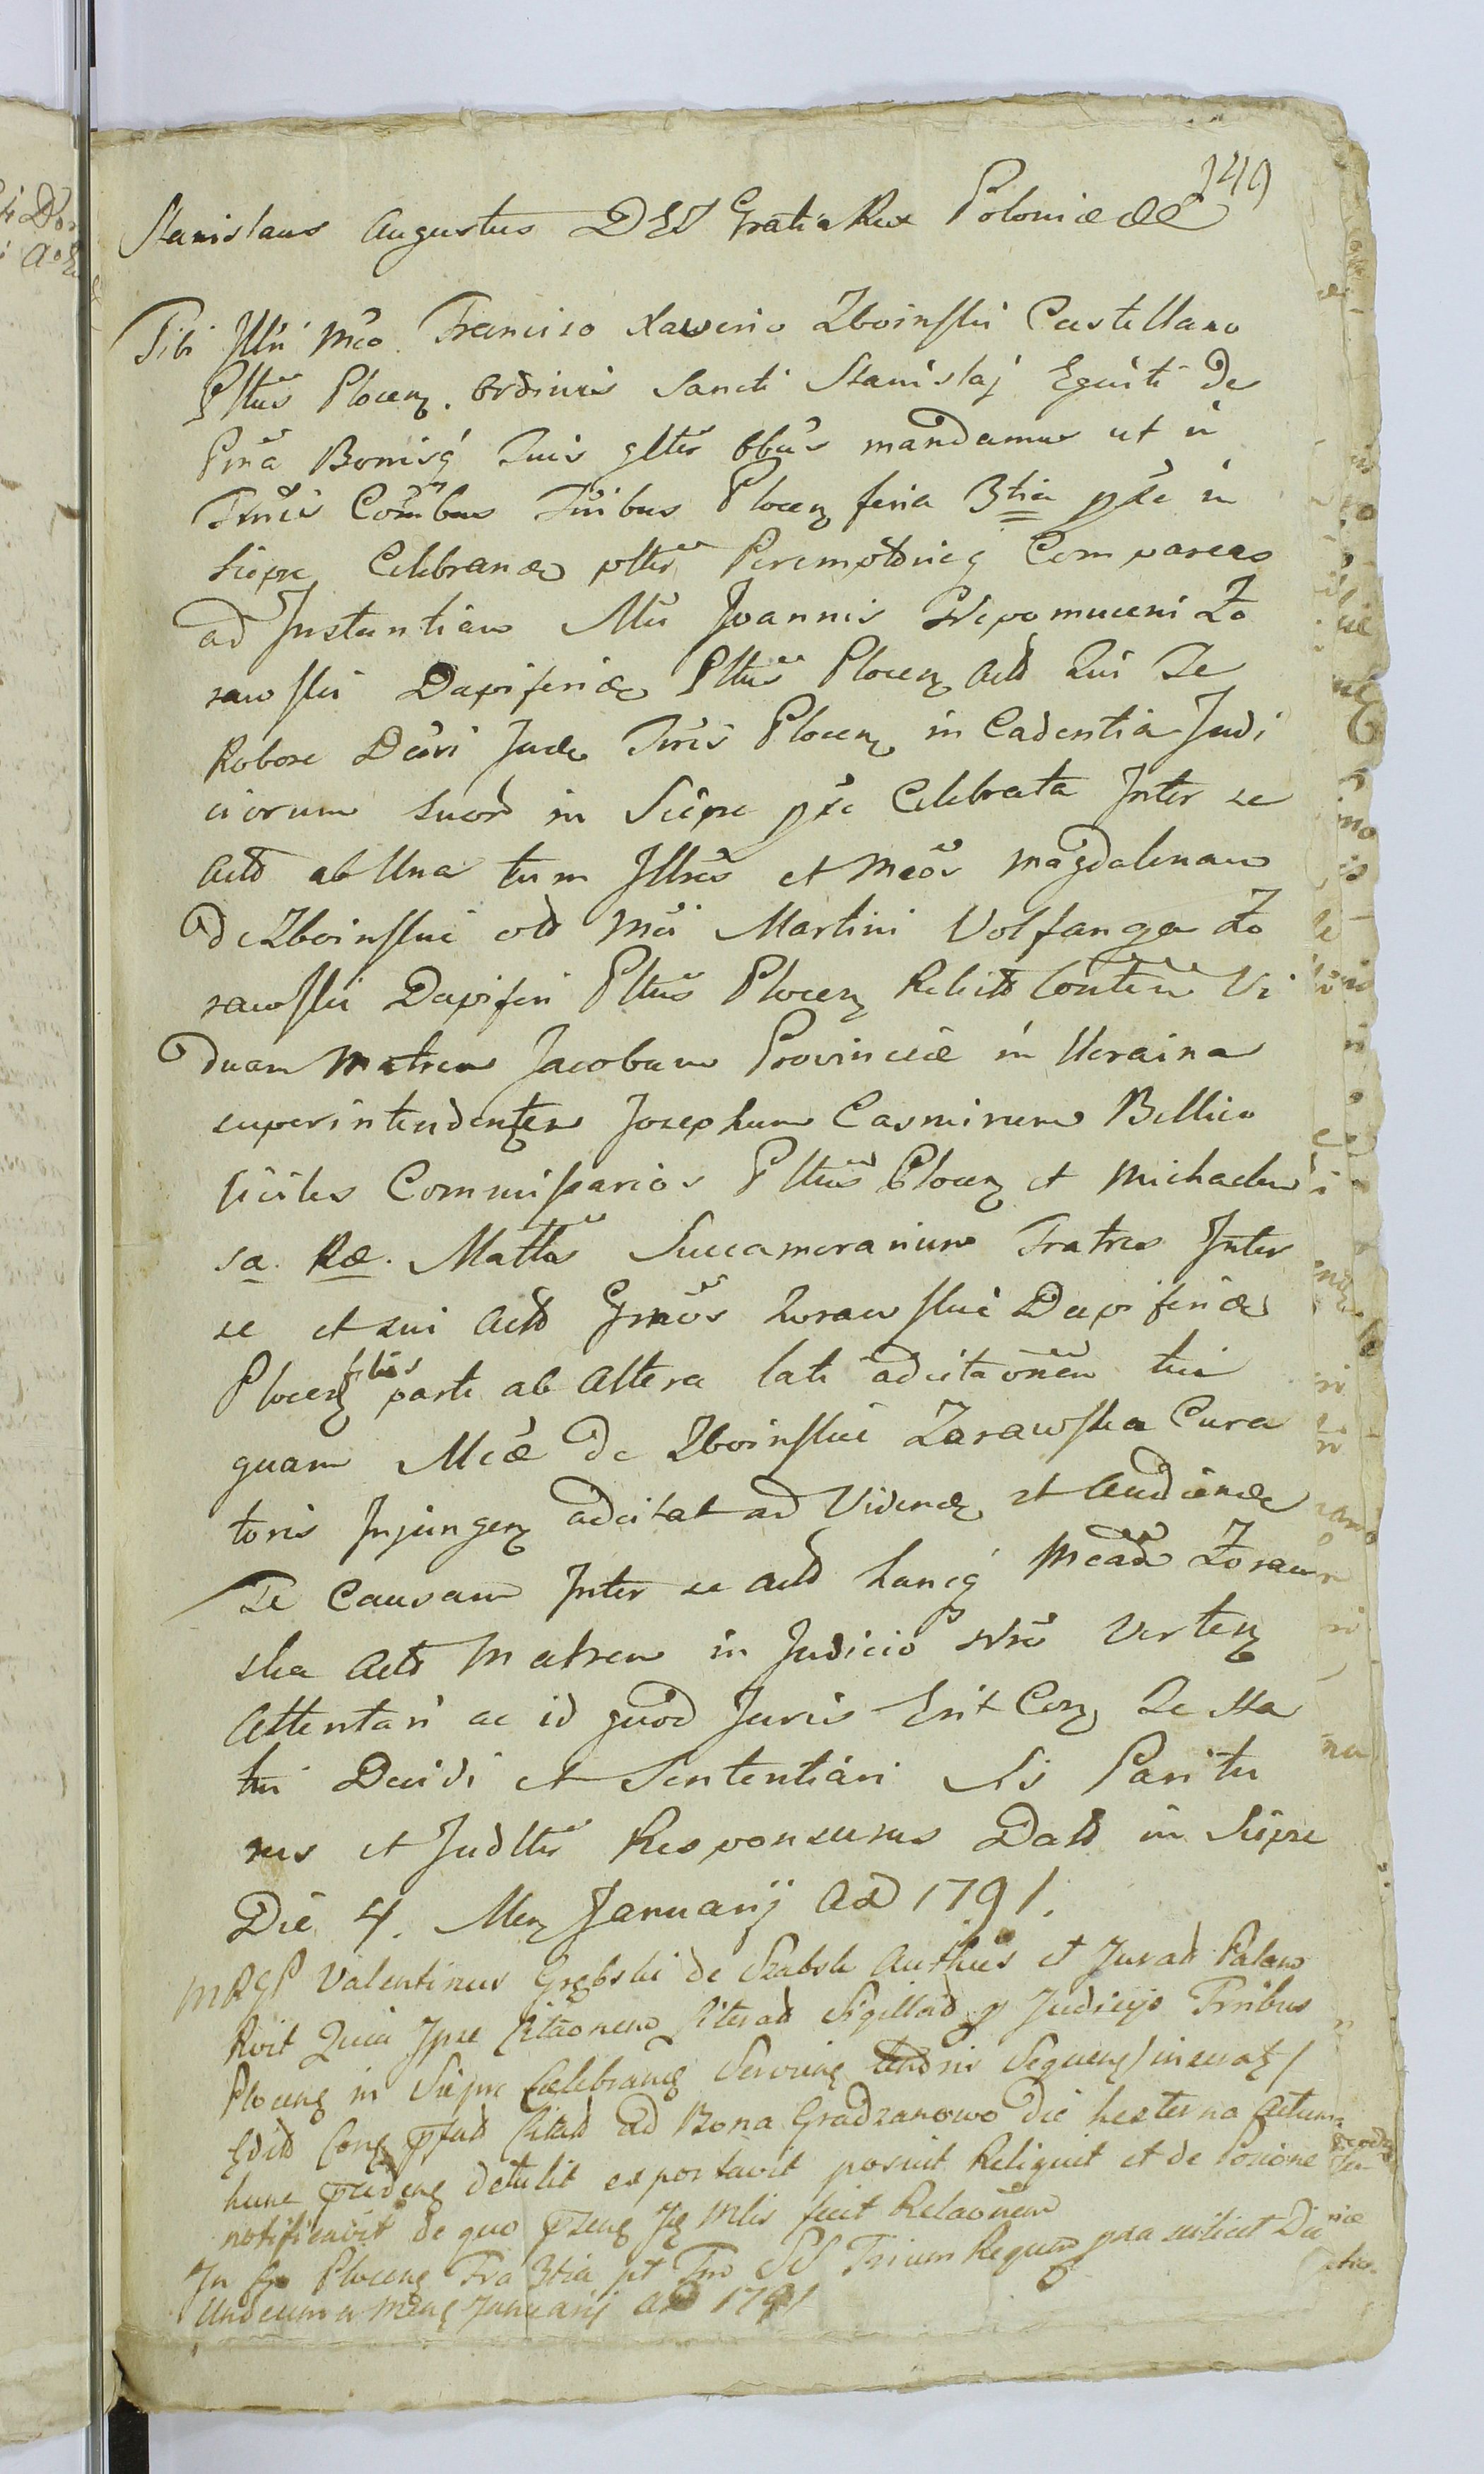 249
Stanislaus Augustus DEI Gratia Rex Poloniæ &&
Tibi Illri Mco Francisco Xawerio Zboinski Castellano
Pltus Plocen. Ordinis Sancti Stanislaj Equiti De
Prna Bonisq Tuis glter obus mandamus ut in
Trris Combus Trribus Plocen feria 3tia pxe in
Sieprc Celebrand pltter Peremptorieq Compareas
ad Instantiam Mci Joannis Nepomuceni Zo
rawski Dapiferidæ Pltus Plocen Acto Qui Te
Robore Decri Jud Trris Plocen in Cadentia Judi
ciorum suor in Sieprc pxe Celebrata Inter se
Acto ab Una tum Illres et Mcos Magdalenam
de Zboinskie olo Mci Martini Volfanga Zo
rawski Dapiferi Pltus Plocen Relicto Contlem Vi
duam Matrem Jacobum Provinciæ in Ucraina
superintendentem Josephum Casmirum Bellico
Civiles Commissarios Pltus Plocen et Michaelem
Sa. Ræ. Mattis Succamerarium Fratres Inter
se et sui Acto Grnos Zorawskie Dapiferid
Plocen filios parte ab Altera lati adcitaonem tui
quam Mcæ de Zboinskie Zorawska Cura
toris Injungen adcitat ad Videnđ et Audienđ
Te Causam Inter se Acto hancq Mcam Zoraw
ska Acto Matrem in Judicio Nro Verten
Attentari ac id quod Juris Erit Con Te Sta
tui Decidi et Sententiari Sis Paritu
rus et Judltter Responsurus Dato in Sieprc
Die 4. Men Januarij AD 1791.
MRGP Valentinus Grębski de Szabsk Authus et Jurad Palam
Roit Quia Ipse Citaonem Literad Sigillad p Judicijs Trribus
Plocen in Sieprc Celebrand Servien Sequens
Edito Con pfad Citad ad Bona Gradzanowo die hesterna Actum
hunc præden detulit exportavit posuit Reliquit et de Poione
notificavit de quo pzens Jq Mlis fecit Relaonem
In Plocen Fra 3tia pt Fm SS Trium Regum pxa scilicet Die
Undecima Mens Januarij AD 1791